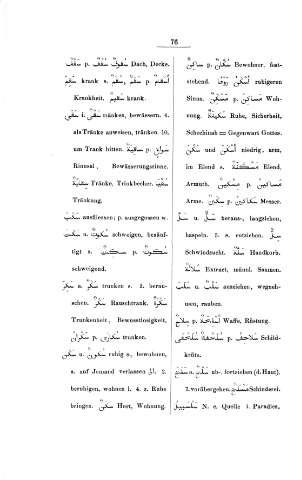 76
سَقْف p. سُقُوف سُقُف Dach, Decke.
سَقِمَ krank s. سُقْم p. أَسْقَام
Krankheit. سَقِيم krank.
سَقَى i. سَقْى tränken, bewässern. 4.
als Tränke anweisen, tränken. 10.
um Trank bitten. سَاقِيَة p. سَوَاقٍ
Rinnsal, Bewässerungsrinne.
سِقَايَة Tränke, Trinkbecher.
Tränkung.
سَكَبَ ausfliessen; p. ausgegossen w.
سَكَتَ u. سُكُوت schweigen, besänf-
tigt s. سُكُوت p. سكت
schweigend.
سَكِرَ a. سُكْر trunken s. 2. berau-
schen. سَكْرَة Rauschtrank.
Trunkenheit, Bewusstlosigkeit,
سَكْرَان p. سُكَارَى trunken.
سَكَنَ u. سُكُون ruhig s., bewohnen,
s. auf Jemand verlassen إلى. 2.
beruhigen, wohnen l. 4. z. Ruhe
bringen. سَكَن Hort, Wohnung.
سَاكِن p. سُكَّان Bewohner, fest-
stehend. أَسْكَن ruhigeren
Sinns. مَسْكَن p. مَسَاكِن Woh-
nung. سَكِينَة Ruhe, Sicherheit,
Schechinah = Gegenwart Gottes.
سَكَنَ und أَسْكَنَ niedrig, arm,
im Elend s. مَسْكَنَة Elend,
Armuth. مِسْكِين p. مَسَاكِين
Arme. سِكِّين p. سَكَاكِين Messer.
سَلَّ u. سَلّ heraus-, losziehen,
haspeln. 2. s. entziehen. سُلّ
Schwindsucht. سَلَّة Handkorb.
سُلَالَة Extract, männl. Saamen.
سَلَبَ u. سَلْب ausziehen, wegneh-
men, rauben.
سِلَاح p. أَسْلِحَة Waffe, Rüstung.
سُلَحْفَاة p. سَلَاحِف Schild-
kröte.
سَلَخَ u. سَلْخ ab-, fortziehen (d. Haut).
7. vorübergehen. مَسْلَخ Schinderei.
سَلْسَبِيل N. e. Quelle i. Paradies,